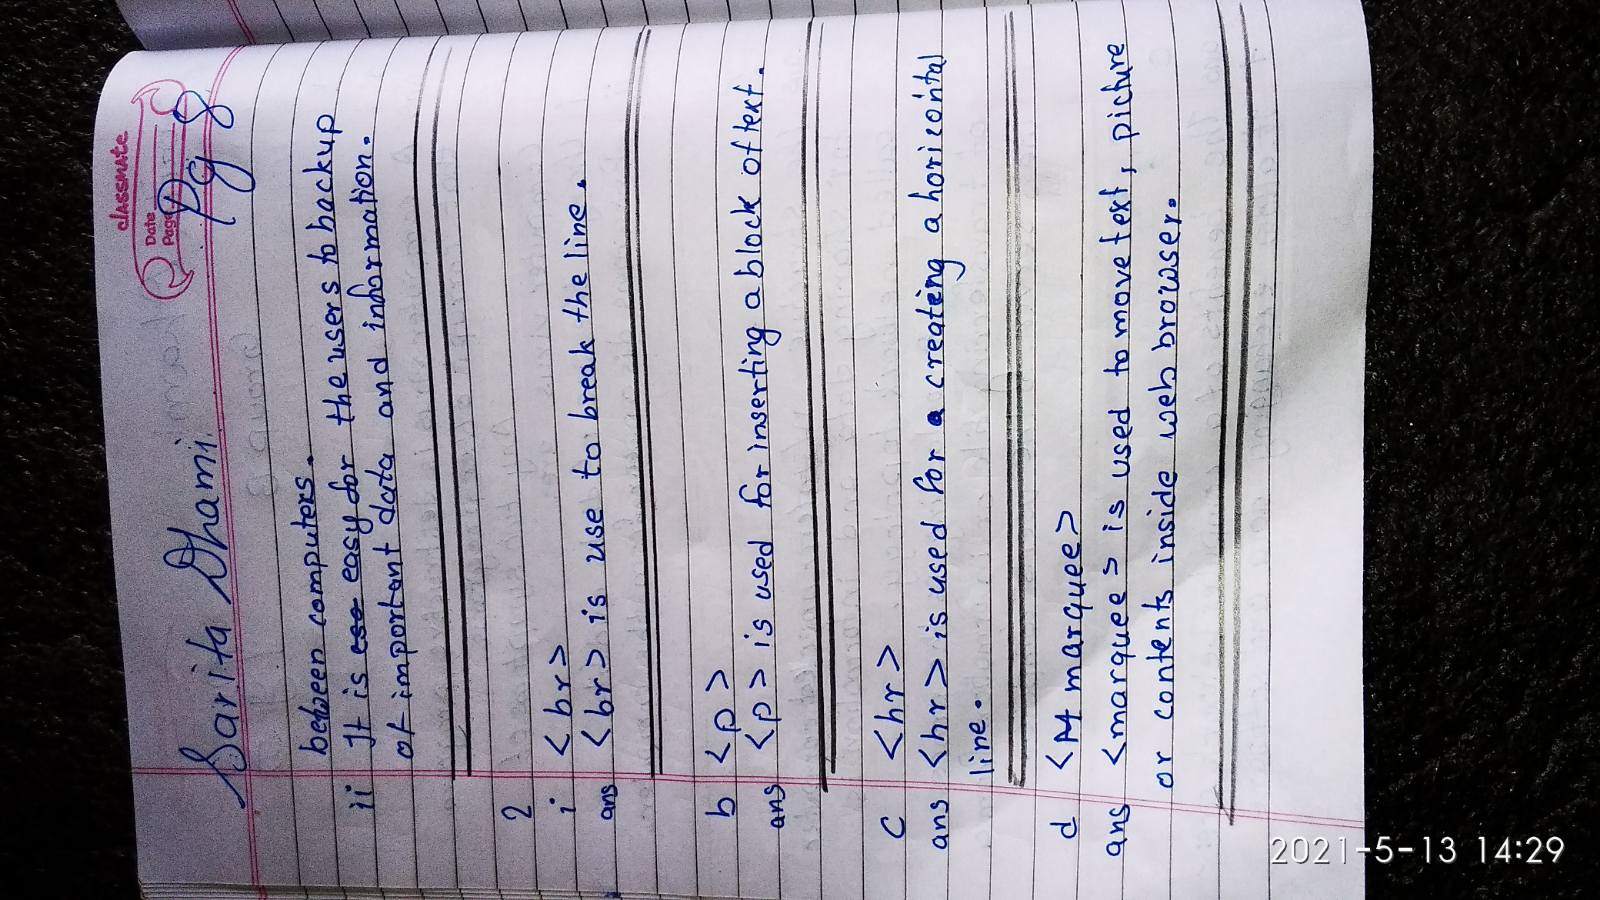 classmate
Date
Page
Pg 8
Sarita Dhami
between computers.
ii It is easy for the users to backup
of important data and information.
2
i <br>
ans <br> is use to break the line.
b <p>
ans <p> is used for inserting a block of text.
c <hr>
ans <hr> is used for a creating a horizontal
line.
d <M marquee>
ans <marquee> is used to move text, picture
or contents inside web browser.
2021-5-13 14:29